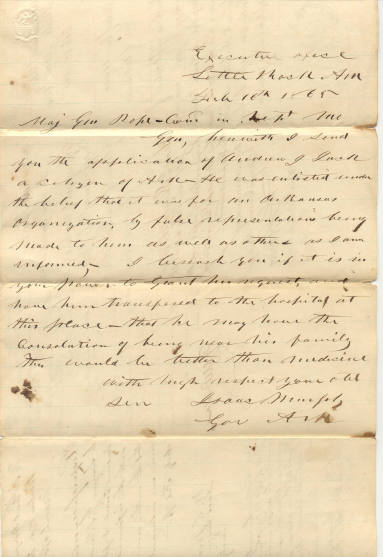 Executive office
Little Rock Ark
Feb 18th 1865
Maj Gen Pope - Com in Dept Mo
Gen, herewith I send
you the application of Andrew J
a citizen of Ark - He was enlisted under
the belief that it was for an Arkansas
organization, by false representations being
made to him as well as others as I am
informed, - I beseech you if it is in
your power to grant his request, and
have him transfered to the hospital at
this place - that he may have the
consolation of being near his family
this would be better than medicine
with high respect your obt
Ser Isaac Murphy
Gov Ark